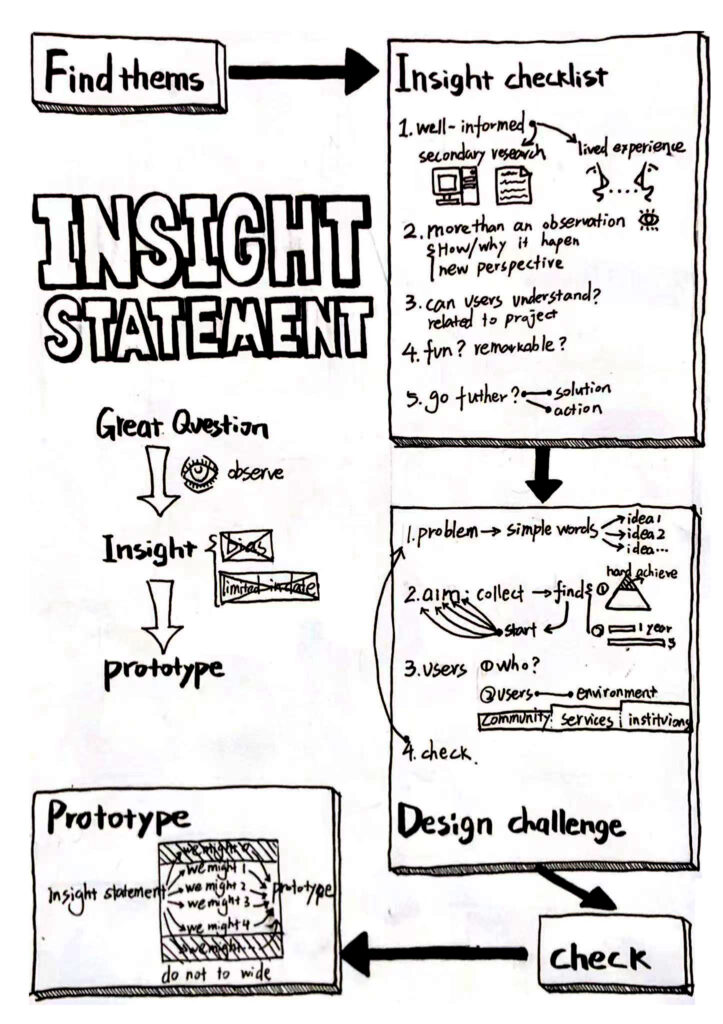 Find thems
Insight checklist
1. well-informed
secondary research
lived experience
2. more than an observation
How/why it hapen
new perspective
3. can users understand?
related to project
4. fun? remarkable?
5. go futher?
solution
action
INSIGHT
STATEMENT
Great Question
observe
Insight
bias
limited in date
prototype
1. problem → simple words
idea 1
idea 2
idea...
2. aim: collect → find
① hard achieve
start
② 1 year
3. users ① who?
② users environment
community services institvions
4. check
Design challenge
check
Prototype
Insight statement
we might 0
we might 1
we might 2
we might 3
we might 4
we might
prototype
do not to wide